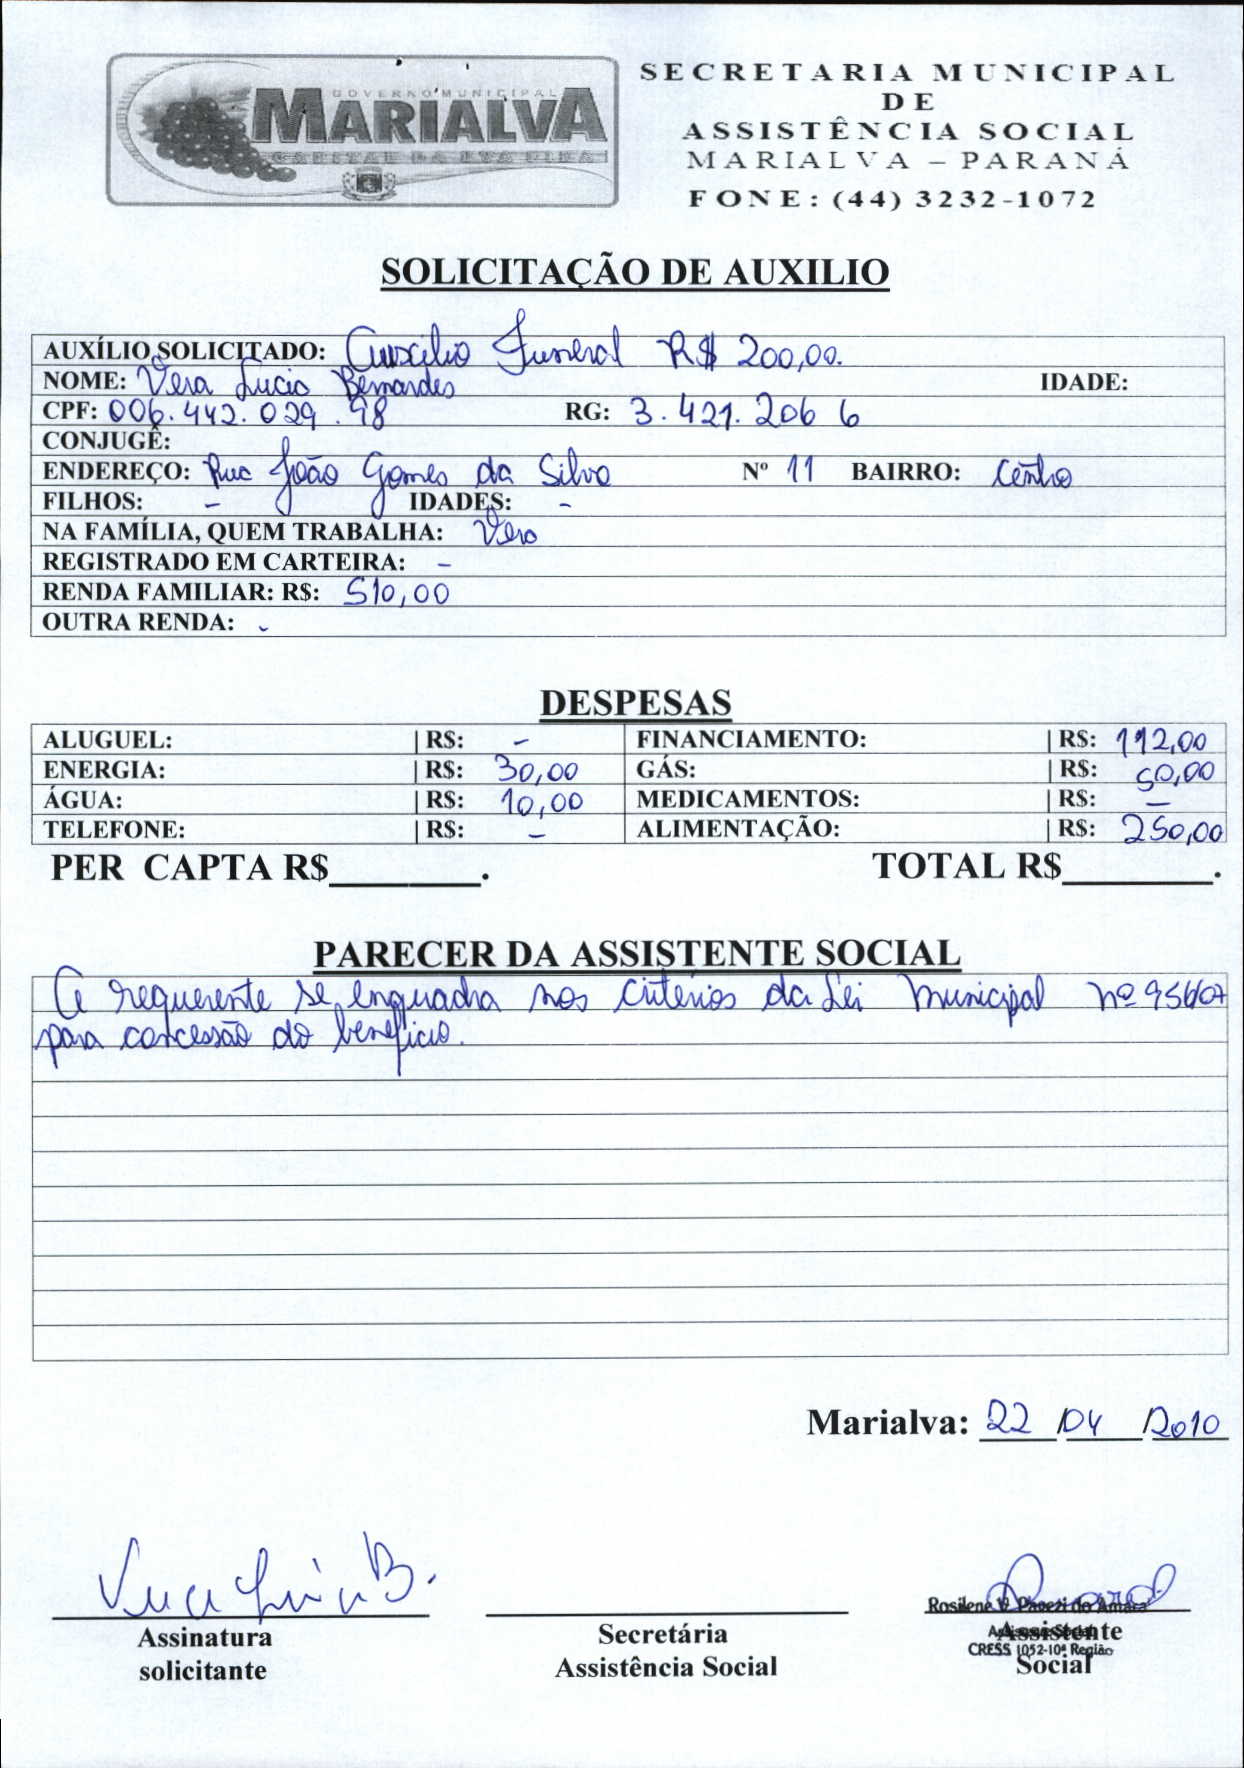 GOVERNO MUNICIPAL
MARIALVA
CAPITAL DA UVA FINA
SECRETARIA MUNICIPAL
DE
ASSISTÊNCIA SOCIAL
MARIALVA – PARANÁ
FONE: (44) 3232-1072
SOLICITAÇÃO DE AUXILIO
AUXÍLIO SOLICITADO: Auxílio Funeral R$ 200,00.
NOME: Vera Lucia Bernardes IDADE:
CPF: 006.442.029.98 RG: 3.421.206 6
CONJUGÊ:
ENDEREÇO: Rua João Gomes da Silva Nº 11 BAIRRO: Centro
FILHOS: - IDADES: -
NA FAMÍLIA, QUEM TRABALHA: Vera
REGISTRADO EM CARTEIRA: -
RENDA FAMILIAR: R$: 510,00
OUTRA RENDA: -
DESPESAS
ALUGUEL: | R$: - FINANCIAMENTO: | R$: 112,00
ENERGIA: | R$: 30,00 GÁS: | R$: 50,00
ÁGUA: | R$: 10,00 MEDICAMENTOS: | R$: -
TELEFONE: | R$: - ALIMENTAÇÃO: | R$: 250,00
PER CAPTA R$________. TOTAL R$________.
PARECER DA ASSISTENTE SOCIAL
A requerente se enquadra nos critérios da Lei Municipal nº
para concessão do benefício.
Marialva: 22 /04 /2010
Vera Lúcia B.
Rosilene V. Pavezi do Amaral
Assinatura Secretária Assistente
solicitante Assistência Social Social
Assistente Social
CRESS 1052-10ª Região